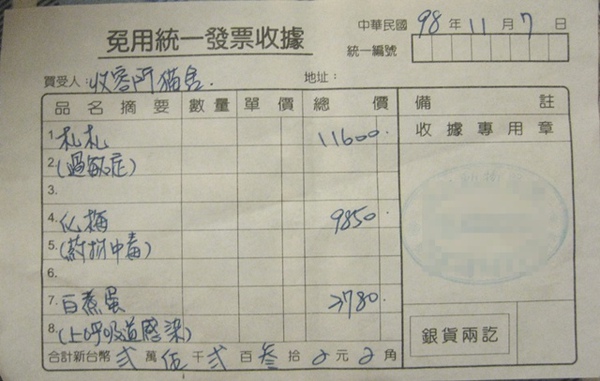 免用統一發票收據
中華民國 98 年 11 月 7 日
統一編號
買受人：收容門貓舍.
地址：
品名摘要 數量 單價 總價 備註
收據專用章
1. 札札 11600.
2. (過敏症)
3.
4. 化梅 9850.
5. (葯物中毒)
6.
7. 白煮蛋 3780.
8. (上呼吸道感染)
銀貨兩訖
合計新台幣 弍 萬 伍 千 弍 百 叁 拾 0 元 0 角